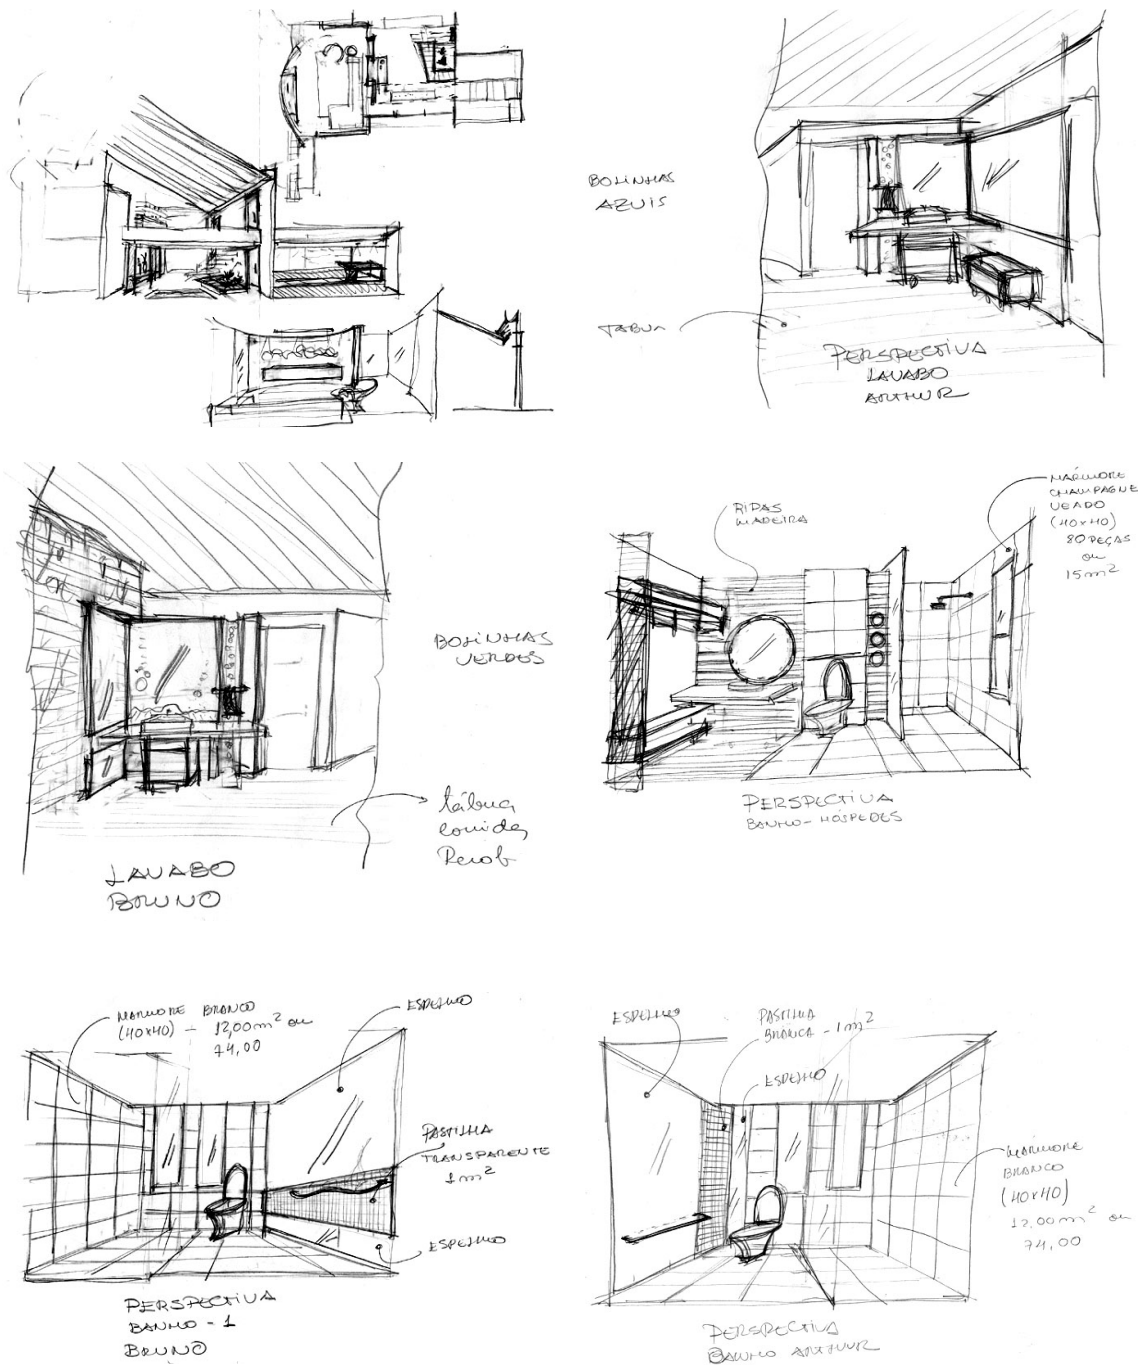 BOLINHAS
AZUIS
PERSPECTIVA
LAVABO
ARTHUR
BOLINHAS
VERDES
tábua
LAVABO
BRUNO
RIPAS
MADEIRA
MÁRMORE
CHAMPAGNE
VEADO
(40x40)
80 PEÇAS
ou
15m²
PERSPECTIVA
BANHO-HÓSPEDES
MARMORE BRANCO
(40x40) - 12,00m² ou
74,00
ESPELHO
PASTILHA
TRANSPARENTE
1m²
ESPELHO
PERSPECTIVA
BANHO - 1
BRUNO
ESPELHO
PASTILHA
BRANCA - 1m²
ESPELHO
MARMORE
BRANCO
(40x40)
12,00m² ou
74,00
PERSPECTIVA
BANHO ARTHUR